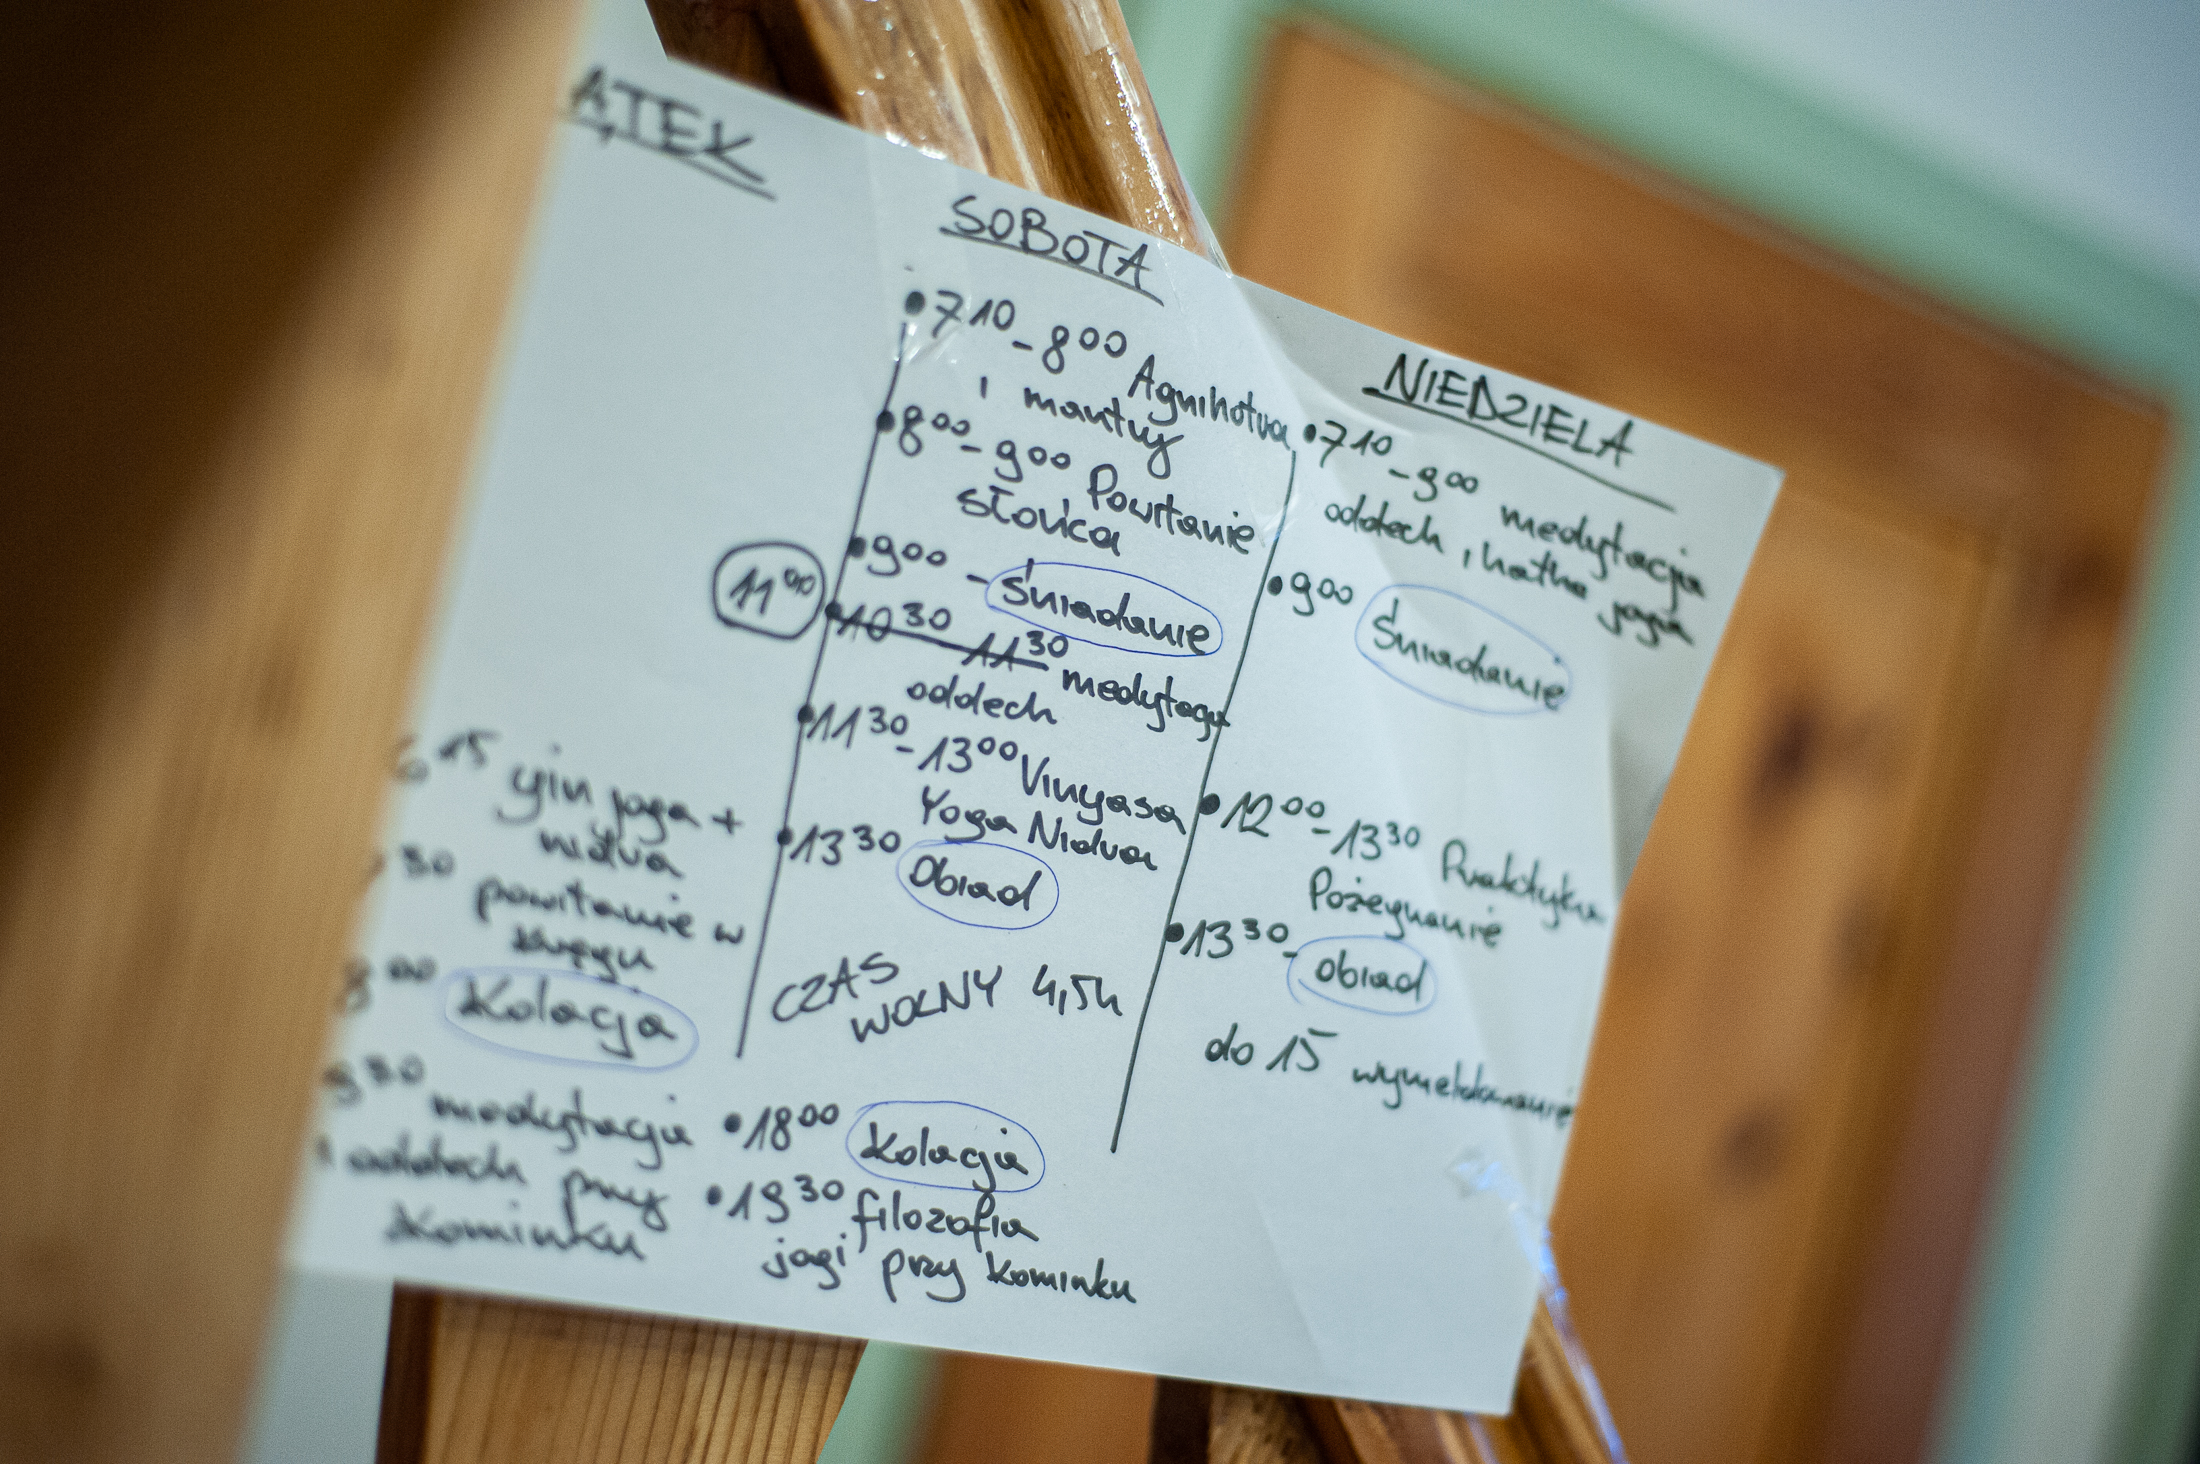 ĄTEK
6 15 yin joga +
nidra
30 powitanie w
kręgu
8 00 Kolacja
9 30 medytacja
i oddech przy
kominku
SOBOTA
• 7 10 - 8 00 Agnihotra
i mantry
• 8 00 - 9 00 Powitanie
słońca
• 9 00 - Śniadanie
11 00
• 10 30 - 11 30 medytacja
oddech
• 11 30 - 13 00 Vinyasa
Yoga Nidra
• 13 30 Obiad
CZAS
WOLNY 4,5h
• 18 00 Kolacja
• 19 30 filozofia
jogi przy kominku
NIEDZIELA
• 7 10 - 9 00 medytacja
oddech, hatha joga
• 9 00 Śniadanie
• 12 00 - 13 30 Praktyka
Pożegnanie
• 13 30 - Obiad
do 15 wymeldowanie